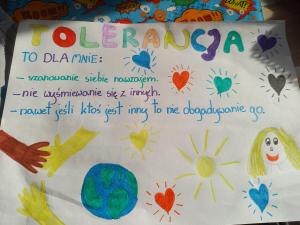 TOLERANCJA
TO DLA MNIE:
- szanowanie siebie nawzajem.
- nie wyśmiewanie się z innych.
- nawet jeśli ktoś jest inny to nie obgadywanie go.